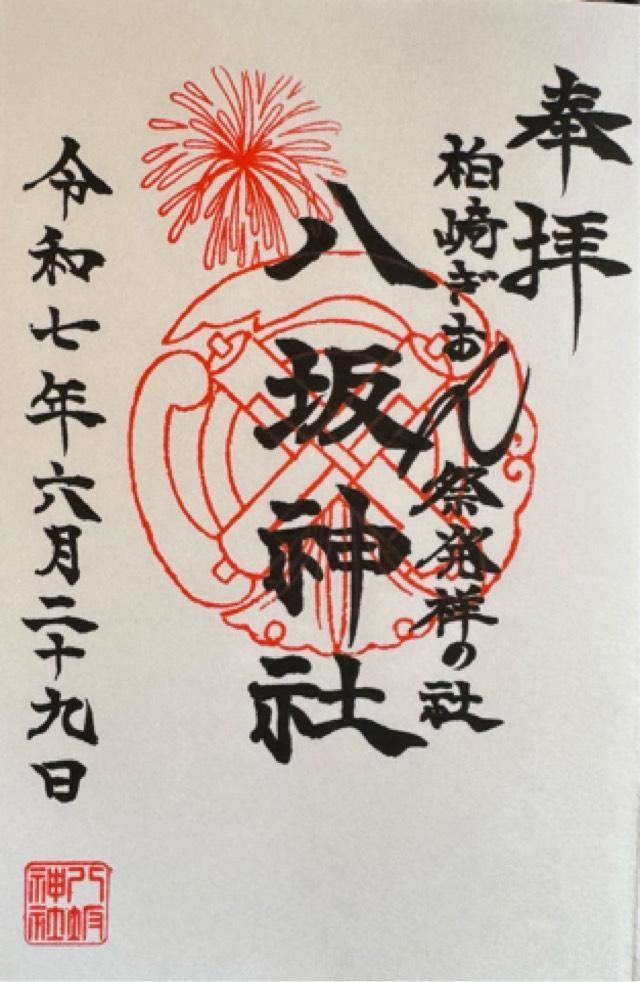 奉拝
柏崎ぎおん祭発祥の社
八坂神社
令和七年六月二十九日
八坂
神社